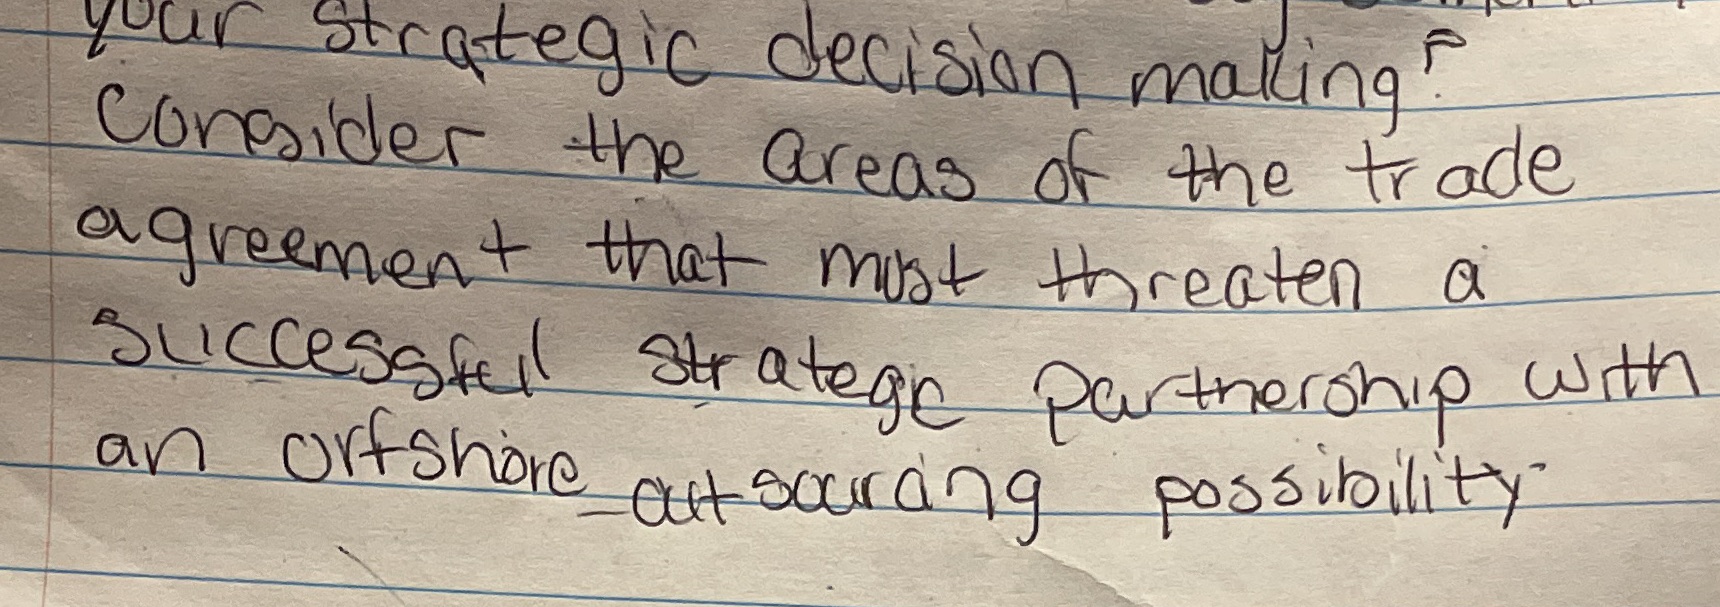 your strategic decision making?
Consider the areas of the trade
agreement that most threaten a
successful strategic partnership with
an offshore outsourcing possibility